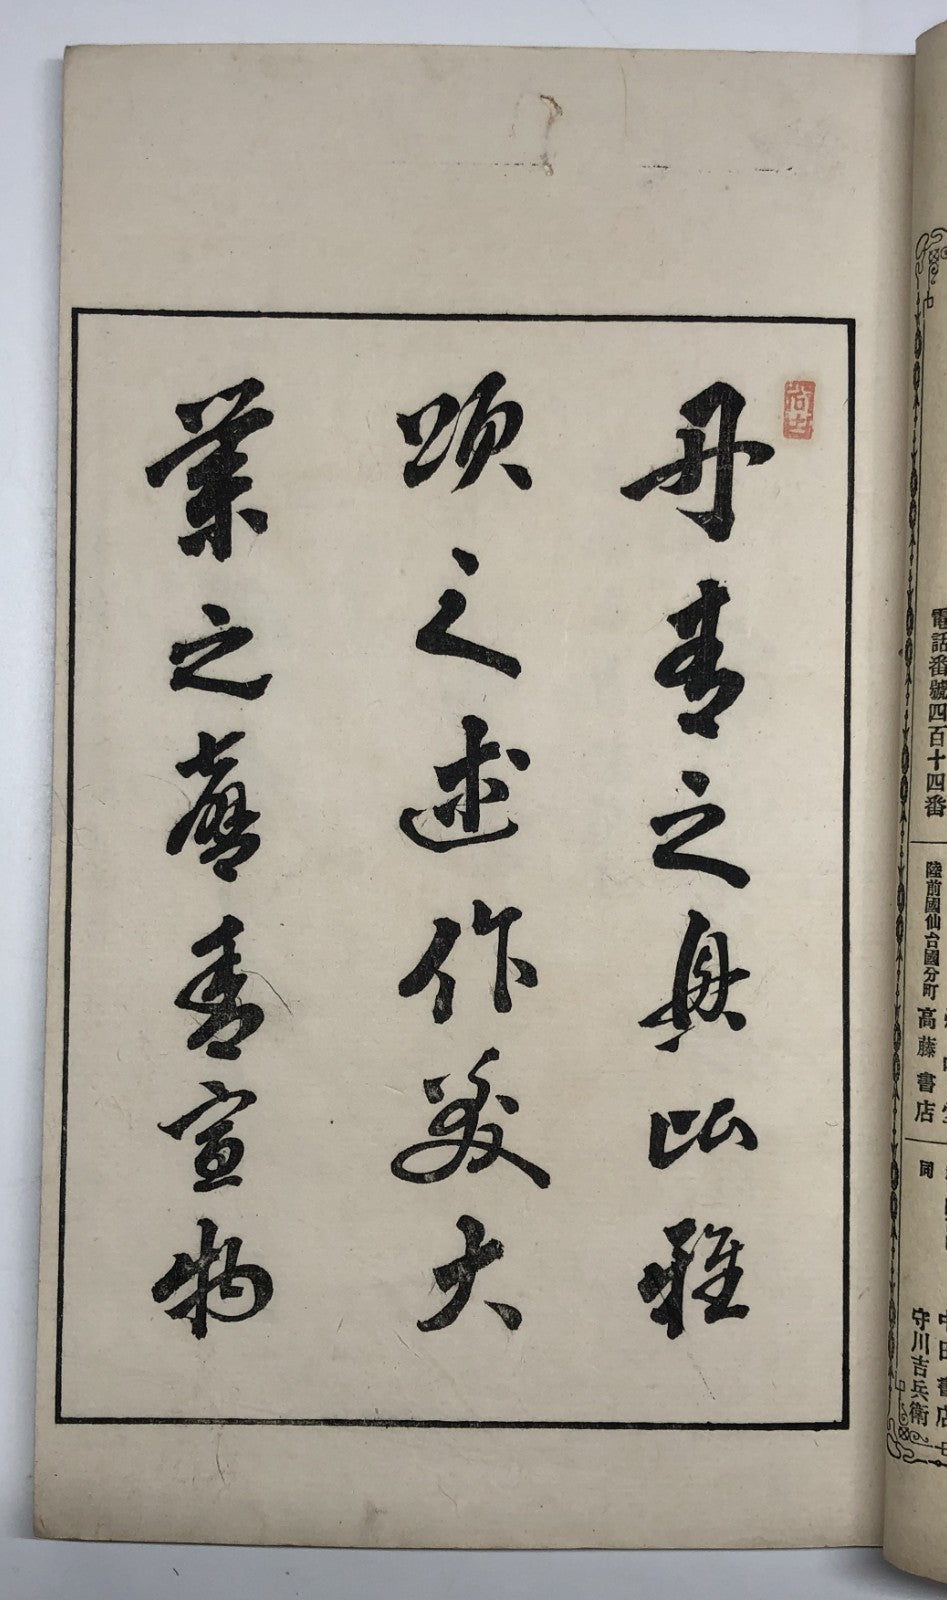 丹青之興比雅
頌之述作美大
業之馨香宣物
電話番號四百十四番
陸前國仙台國分町
高藤書店
同
守川吉兵衛
中田書店